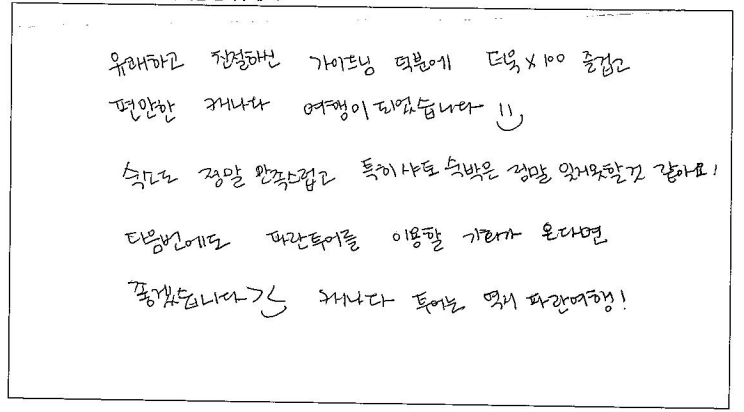 유쾌하고 친절하신 가이드님 덕분에 더욱 x100 즐겁고
편안한 캐나다 여행이 되었습니다 :)
숙소도 정말 만족스럽고 특히 샤토 숙박은 정말 잊지못할것 같아요!
다음번에도 파란투어를 이용할 기회가 온다면
좋겠습니다 ㅎㅎ 캐나다 투어는 역시 파란여행!